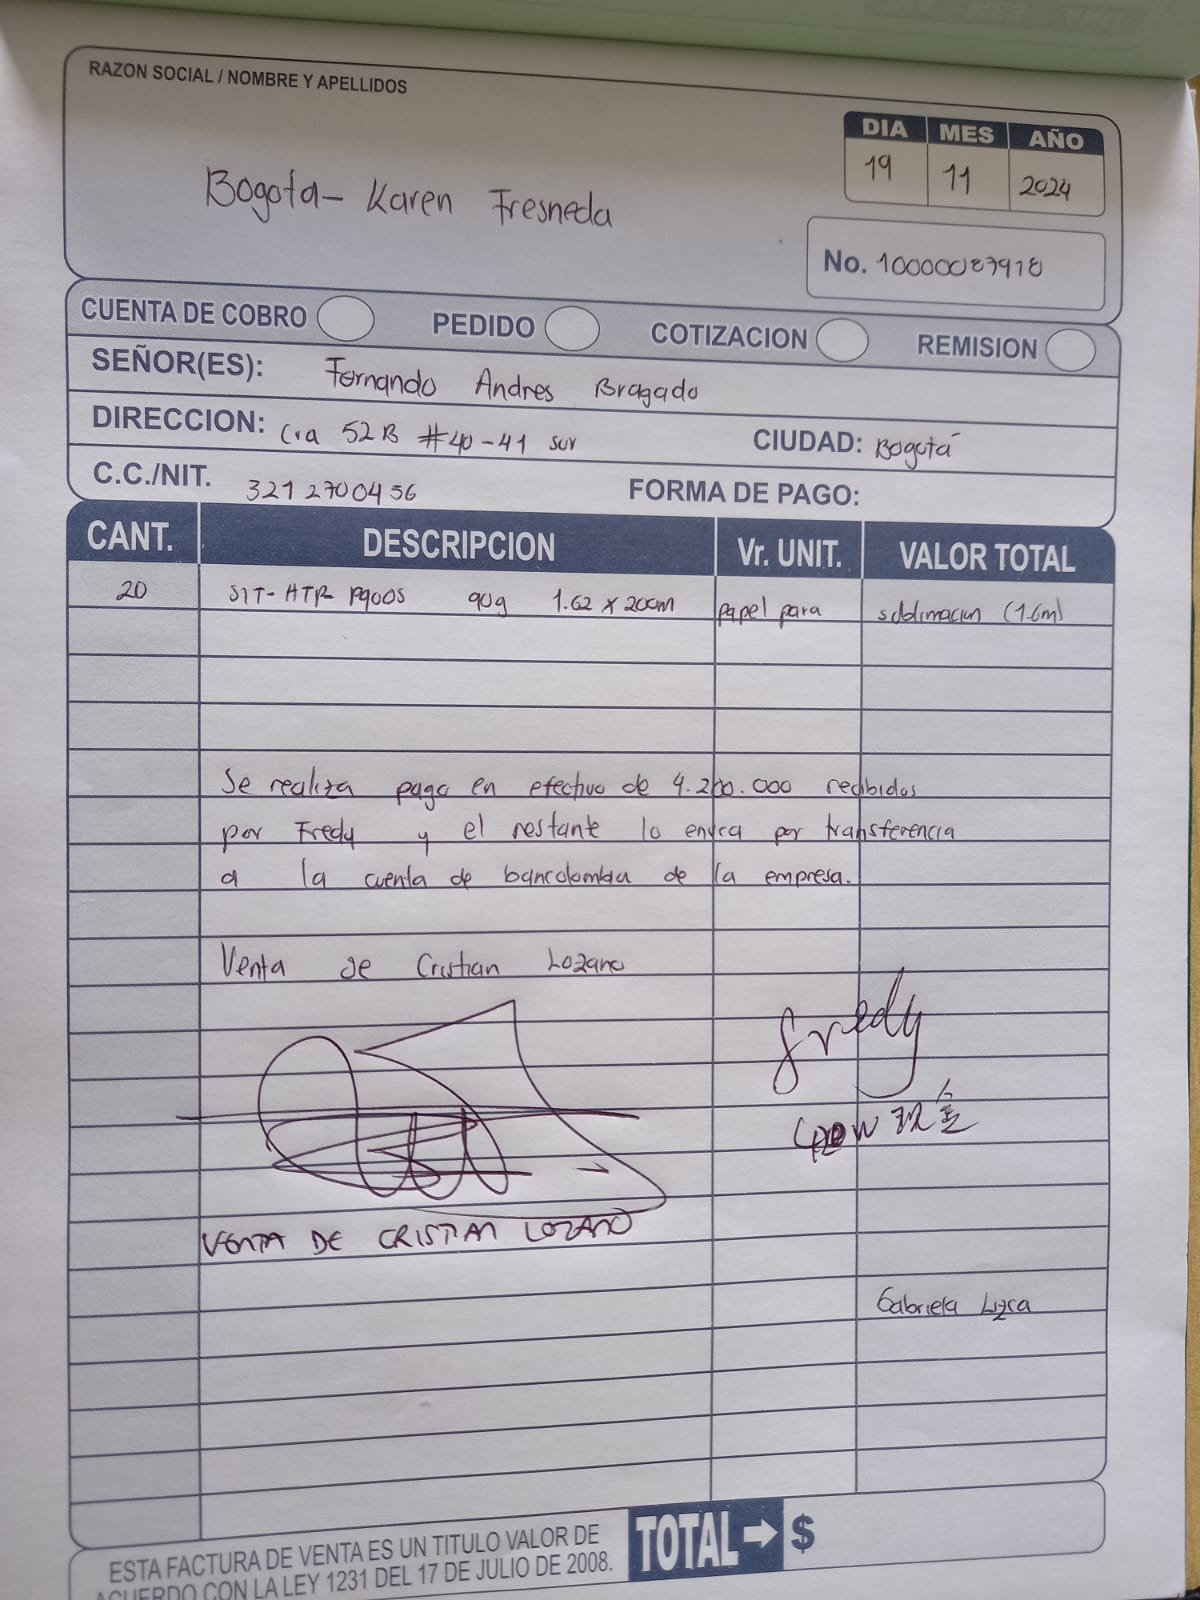 RAZON SOCIAL / NOMBRE Y APELLIDOS
DIA MES AÑO
19 11 2024
Bogota- Karen Fresneda
No. 10000087918
CUENTA DE COBRO PEDIDO COTIZACION REMISION
SEÑOR(ES): Fernando Andres Bragado
DIRECCION: Cra 52B #40-41 sur CIUDAD: Bogotá
C.C./NIT. 3212700456 FORMA DE PAGO:
CANT. DESCRIPCION Vr. UNIT. VALOR TOTAL
20 SIT-HTP- 1900S 90g 1.62 x 200m papel para sublimacion (1.6m)
Se realiza pago en efectivo de 4.200.000 recibidos
por Fredy y el restante lo envia por transferencia
a la cuenta de bancolombia de la empresa.
Venta de Cristian Lozano
Fredy
420W 现金
VENTA DE CRISTIAN LOZANO
Gabriela
ESTA FACTURA DE VENTA ES UN TITULO VALOR DE
ACUERDO CON LA LEY 1231 DEL 17 DE JULIO DE 2008.
TOTAL → $